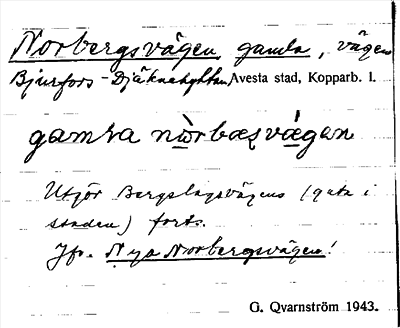 Norbergsvägen, gamla, vägen
Bjurfors–Djäknehyttan, Avesta stad, Kopparb. l.
gamɫa nòrbæʒvä́gen
Utgör Bergslagsvägens (gata i
staden) forts.
Jfr. Nya Norbergsvägen!
G. Qvarnström 1943.